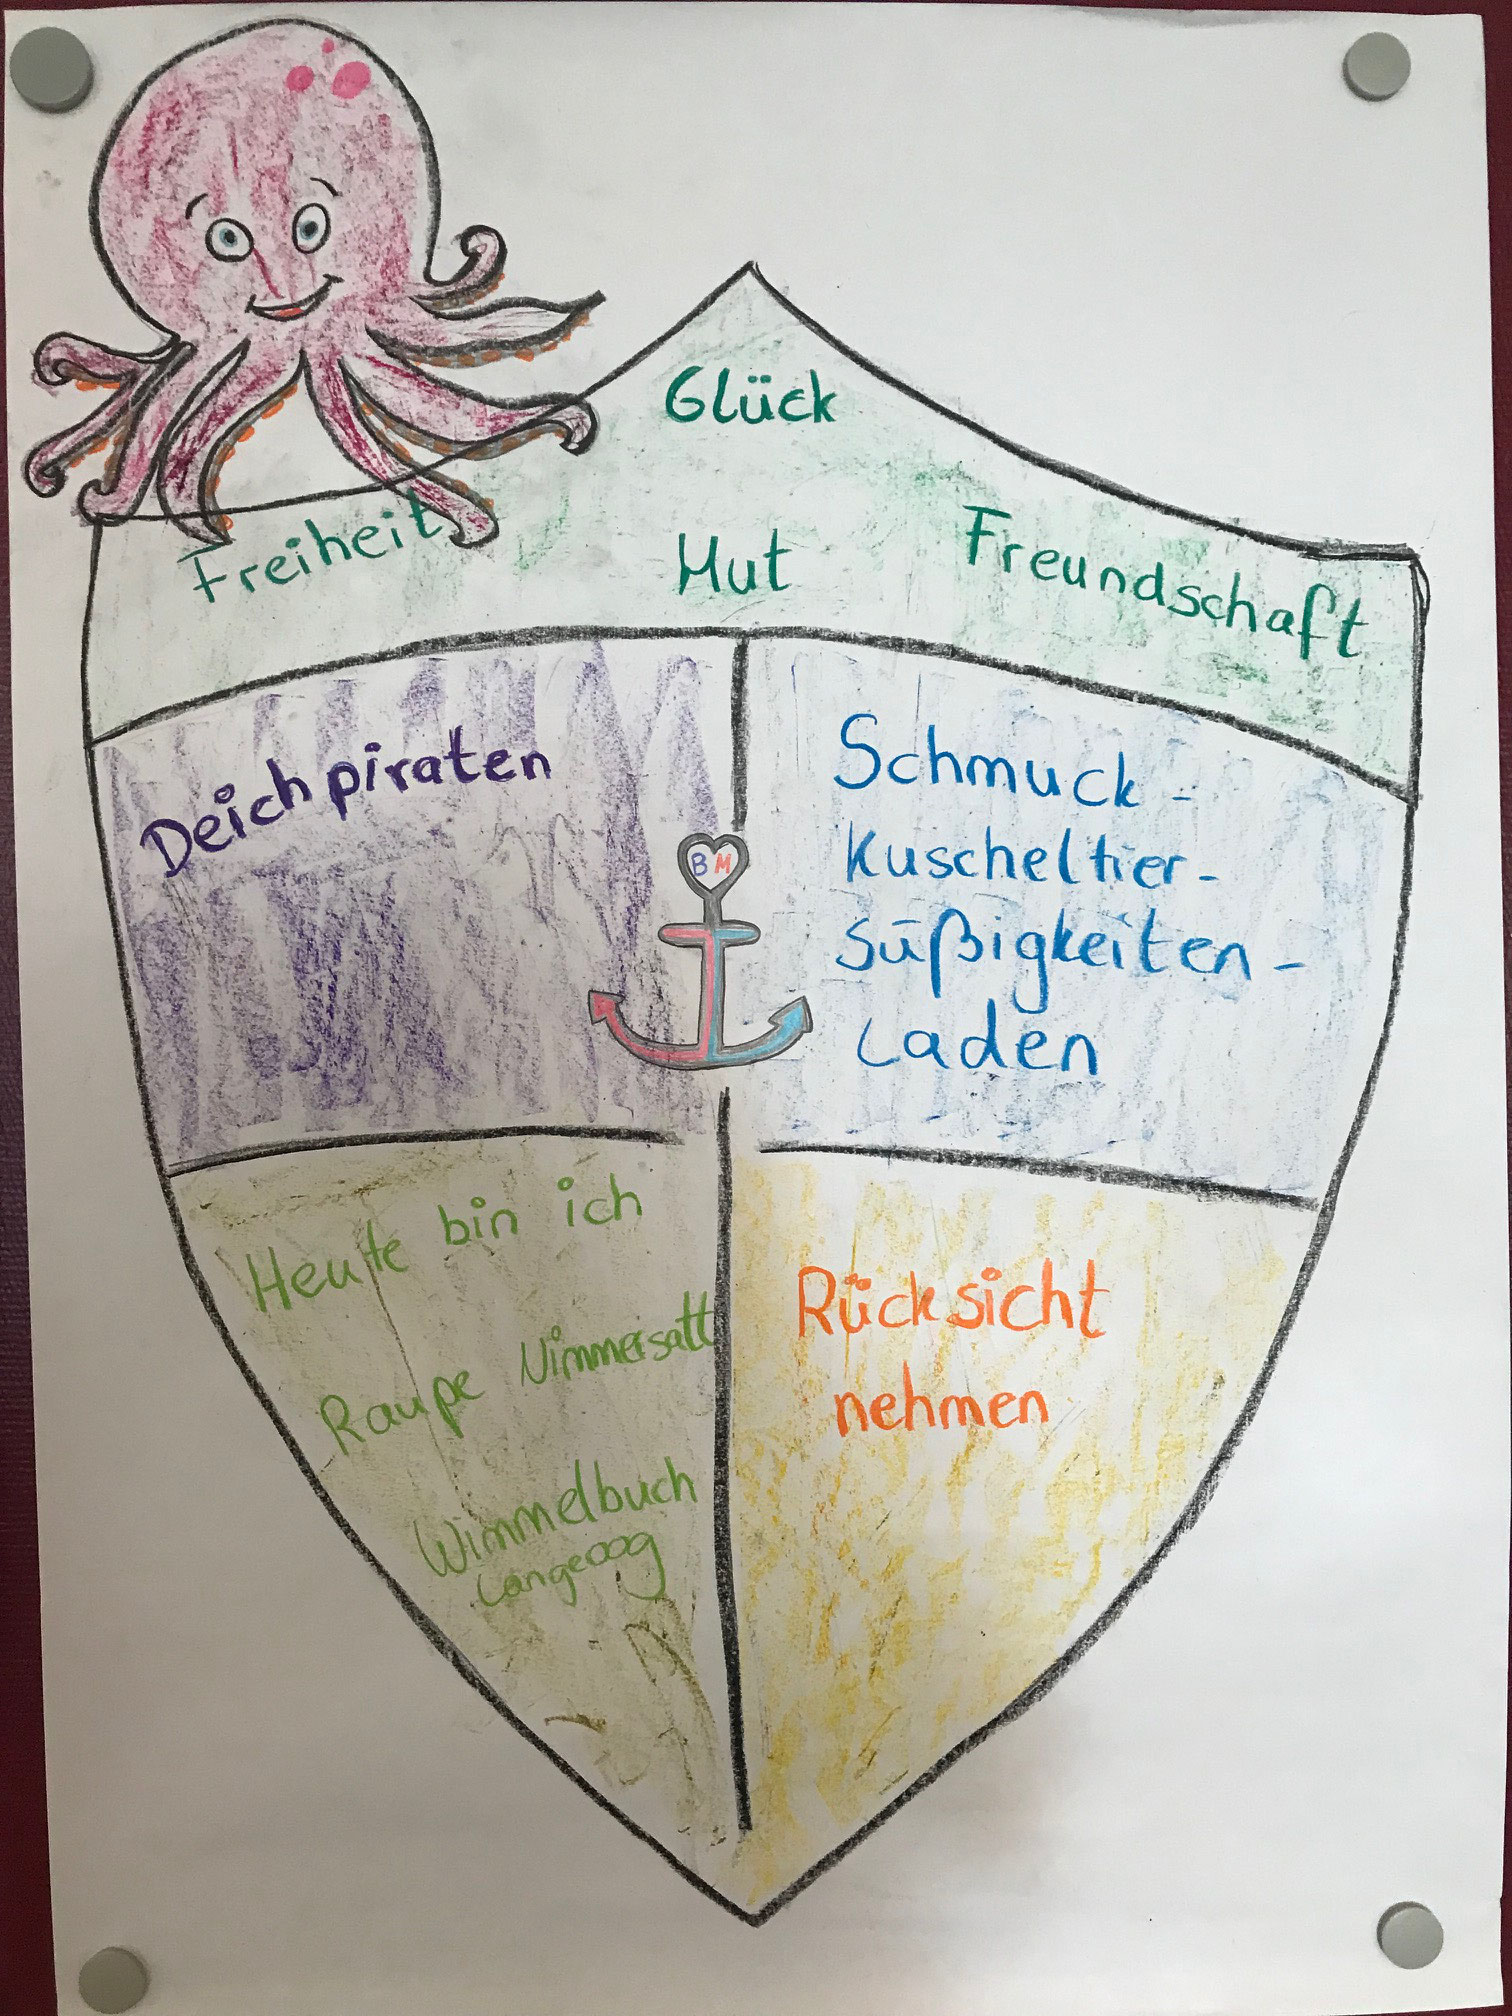 Glück
Freiheit
Mut
Freundschaft
Deichpiraten
Schmuck-
Kuscheltier-
Süßigkeiten-
Laden
B M
Heute bin ich
Raupe Nimmersatt
Wimmelbuch
Langeoog
Rücksicht
nehmen